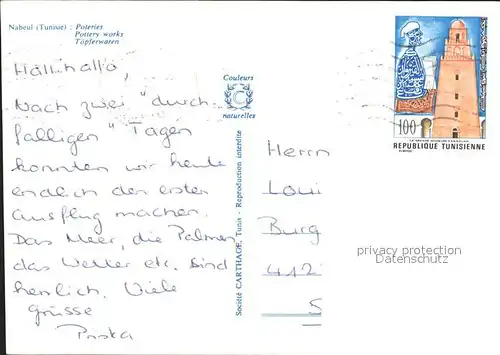 Nabeul (Tunisie) : Poteries
Pottery works
Töpferwaren
Hallihallo,
Nach zwei "durch-
fälligen" Tagen
konnten wir heute
endlich den ersten
Ausflug machen.
Das Meer, die Palmen,
das Wetter etc. sind
herrlich. Viele
Grüsse
Couleurs
C
naturelles
Société CARTHAGE, Tunis - Reproduction interdite
100
REPUBLIQUE TUNISIENNE
Herrn
Loui
Burg
412
privacy protection
Datenschutz